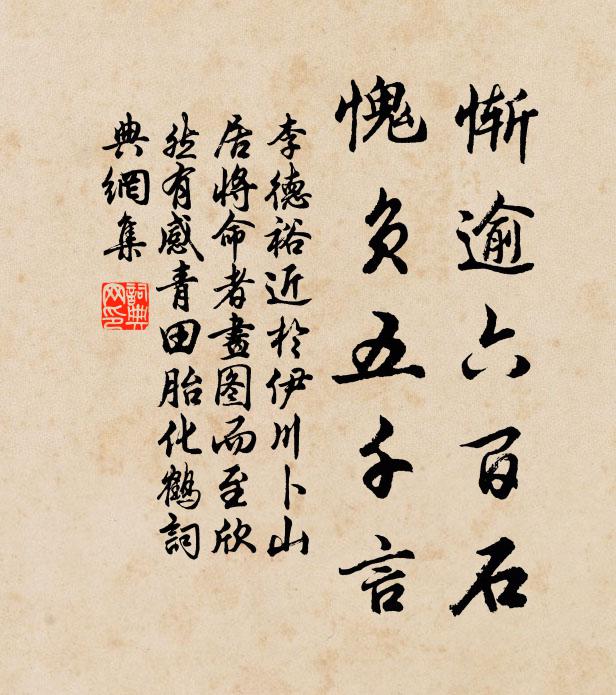 惭逾六百石
愧负五千言
李德裕近於伊川卜山
居将命者畫图而至欣
然有感青田胎化鶴詞
典網集
詞典
网印